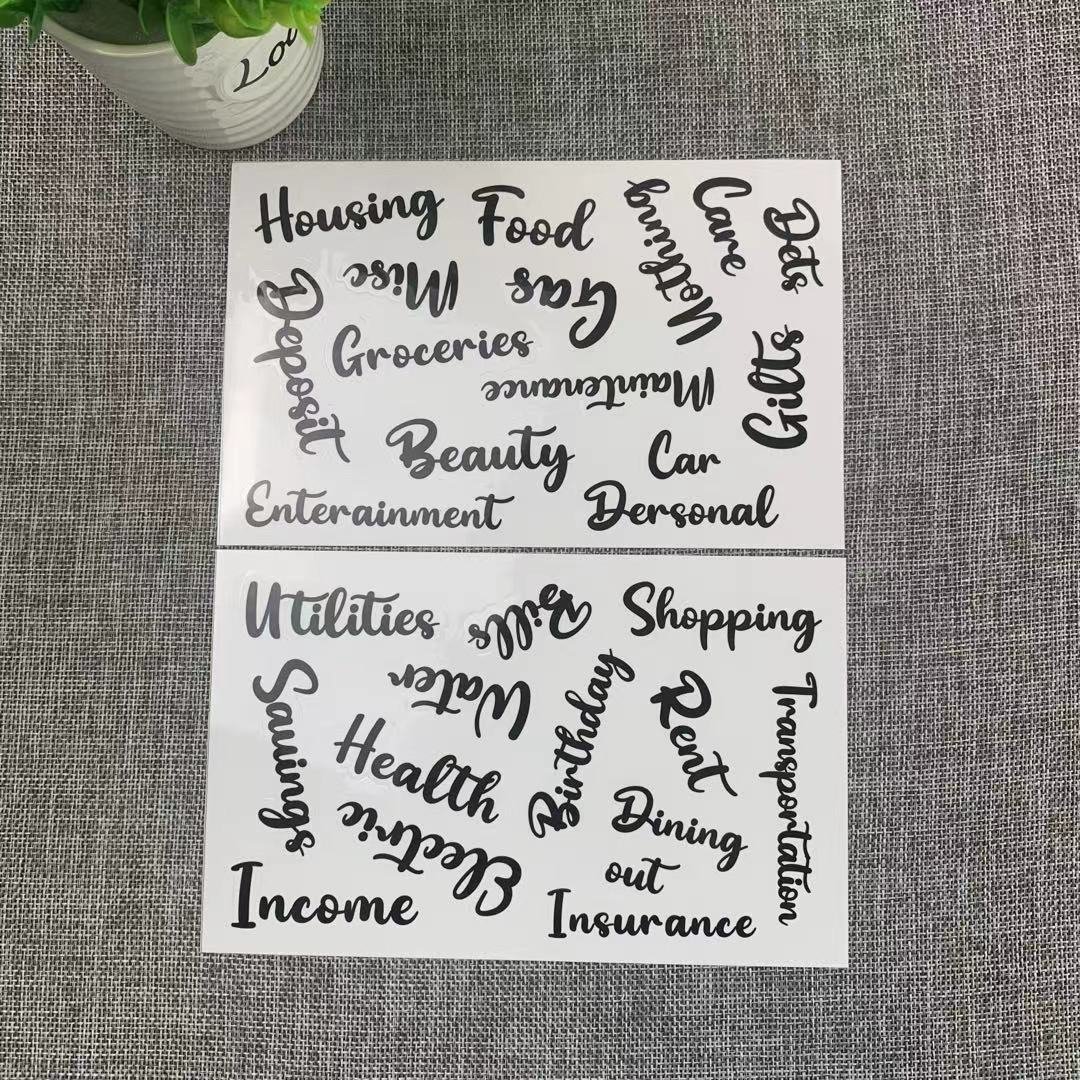 Lou
Housing
Food
Nothing
Care
Dets
Deposit
Misc
Gas
Groceries
Maintenance
Gifts
Beauty
Car
Enterainment
Dersonal
Utilities
Bills
Shopping
Savings
Water
Birthday
Rent
Transportation
Health
Electric
Dining
out
Income
Insurance